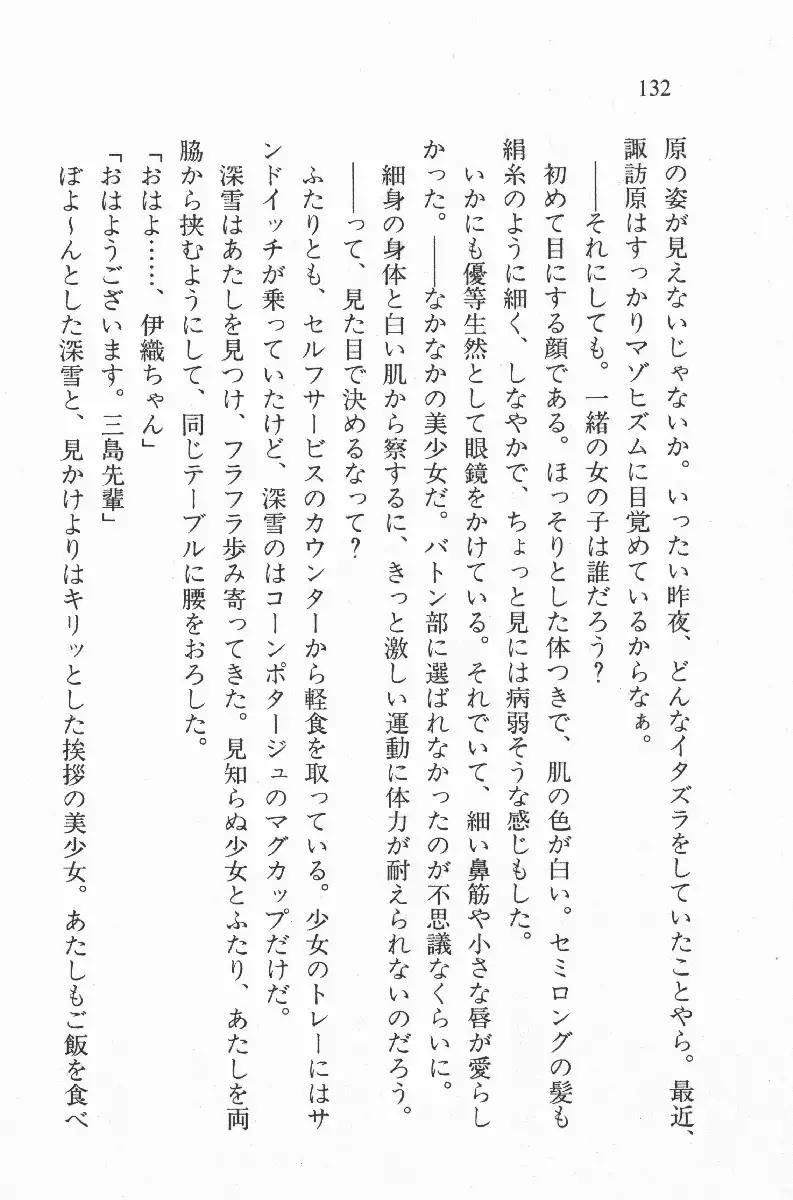 132
原の姿が見えないじゃないか。いったい昨夜、どんなイタズラをしていたことやら。最近、
諏訪原はすっかりマゾヒズムに目覚めているからなぁ。
――それにしても。一緒の女の子は誰だろう？
初めて目にする顔である。ほっそりとした体つきで、肌の色が白い。セミロングの髪も
絹糸のように細く、しなやかで、ちょっと見には病弱そうな感じもした。
いかにも優等生然として眼鏡をかけている。それでいて、細い鼻筋や小さな唇が愛らし
かった。――なかなかの美少女だ。バトン部に選ばれなかったのが不思議なくらいに。
細身の身体と白い肌から察するに、きっと激しい運動に体力が耐えられないのだろう。
――って、見た目で決めるなって？
ふたりとも、セルフサービスのカウンターから軽食を取っている。少女のトレーにはサ
ンドイッチが乗っていたけど、深雪のはコーンポタージュのマグカップだけだ。
深雪はあたしを見つけ、フラフラ歩み寄ってきた。見知らぬ少女とふたり、あたしを両
脇から挟むようにして、同じテーブルに腰をおろした。
「おはよ……、伊織ちゃん」
「おはようございます。三島先輩」
ぼよ～んとした深雪と、見かけよりはキリッとした挨拶の美少女。あたしもご飯を食べ